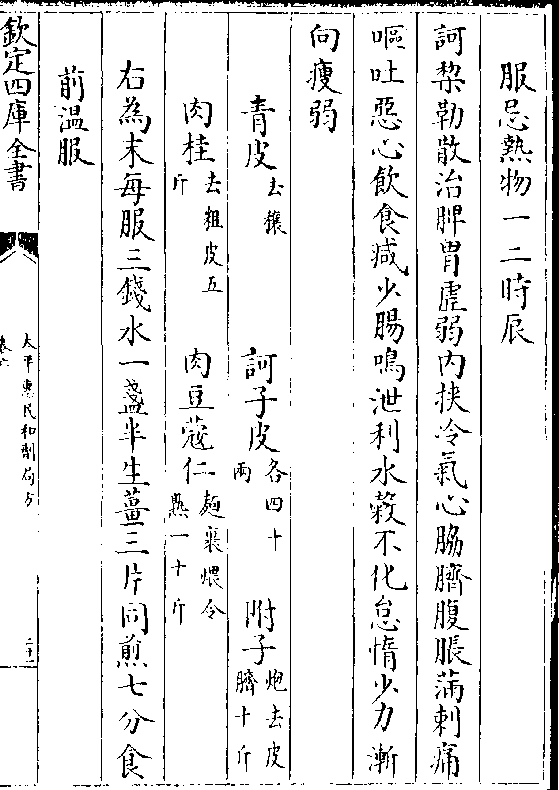 服忌熱物一二時辰
訶棃勒散治脾胃虛弱内挾冷氣心脇臍腹脹滿刺痛
嘔吐惡心飲食減少腸鳴泄利水穀不化怠惰少力漸
向瘦弱
青皮去穰 訶子皮各四十兩 附子炮去皮臍十斤
肉桂去粗皮五斤 肉豆蔻仁麺裹煨令熟一十斤
右為末每服三錢水一盞半生薑三片同煎七分食
前溫服
欽定四庫全書
太平惠民和劑局方